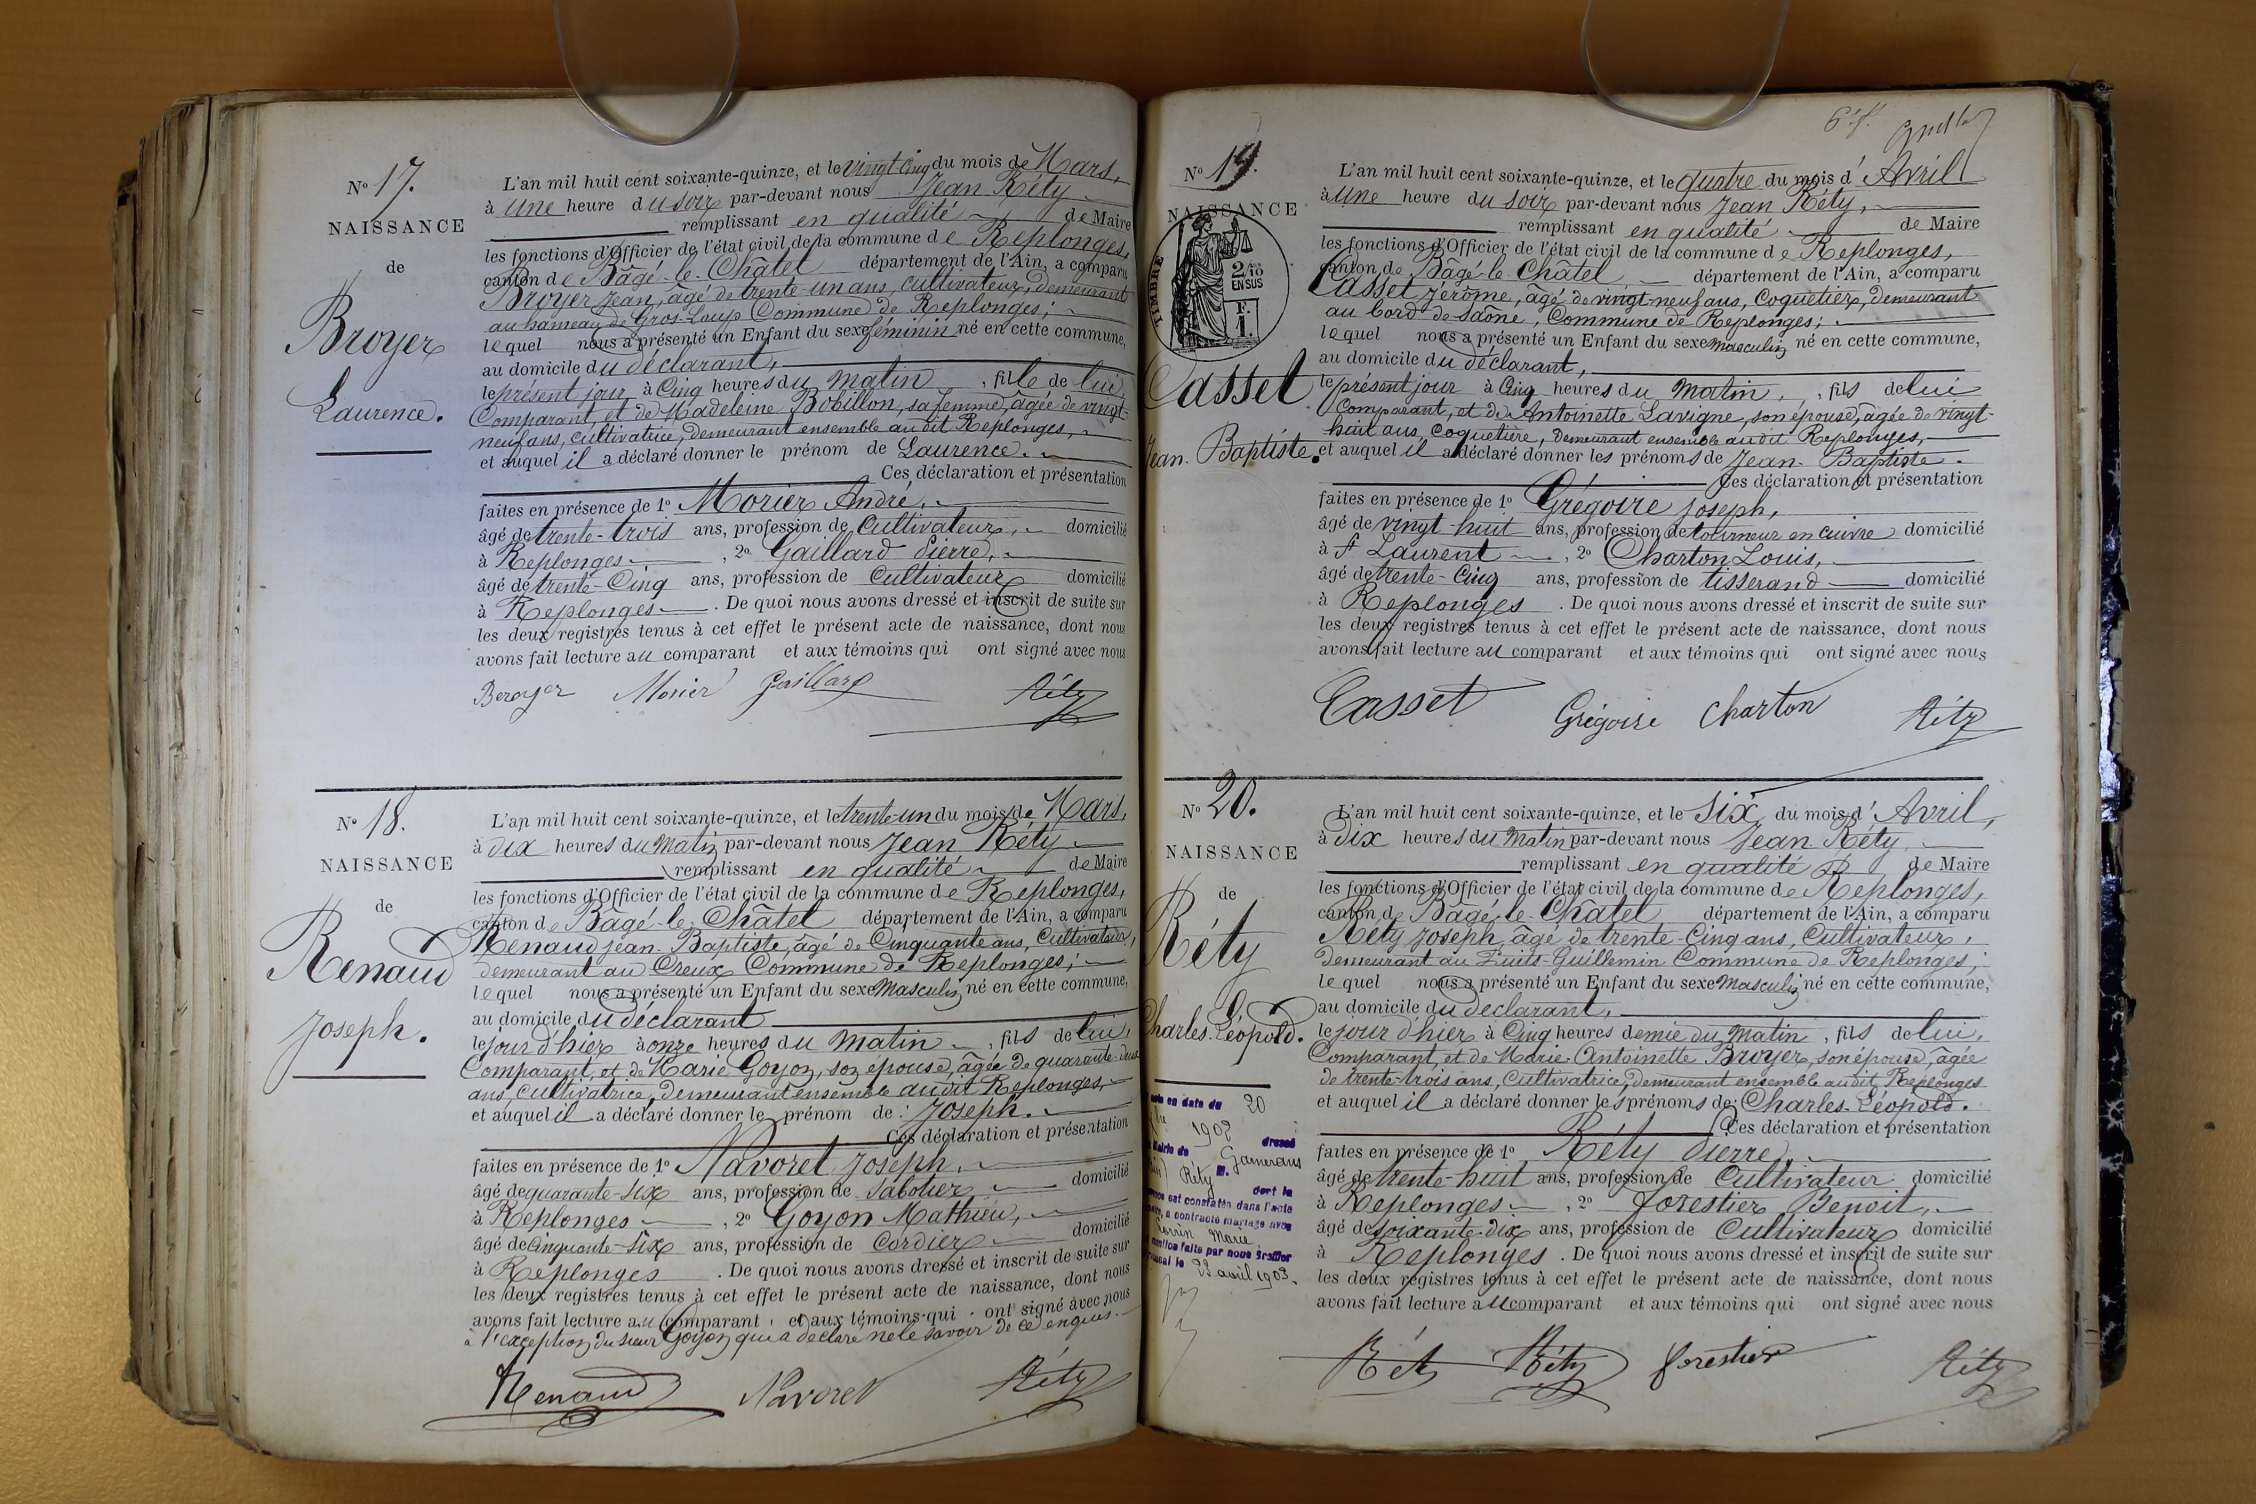 N° 17.
NAISSANCE
de
Broyer
Laurence.
L'an mil huit cent soixante-quinze, et le vingt cinq du mois de Mars,
à une heure du soir par-devant nous Jean Réty
remplissant en qualité de Maire
les fonctions d'Officier de l'état civil de la commune de Replonges,
canton de Bâgé-le-Châtel département de l'Ain, a comparu
Broyer Jean, âgé de trente-un ans, cultivateur, demeurant
au hameau de Gros-Loup Commune de Replonges;
lequel nous a présenté un Enfant du sexe féminin né en cette commune,
au domicile du déclarant,
le présent jour à Cinq heures du matin, fille de lui,
Comparant, et de Madeleine Bobillon, sa femme, âgée de vingt-
neuf ans, cultivatrice, demeurant ensemble au dit Replonges,
et auquel il a déclaré donner le prénom de Laurence.
Ces déclaration et présentation
faites en présence de 1° Morier André,
âgé de trente-trois ans, profession de Cultivateur, domicilié
à Replonges, 2° Gaillard Pierre,
âgé de trente-Cinq ans, profession de Cultivateur domicilié
à Replonges. De quoi nous avons dressé et inscrit de suite sur
les deux registres tenus à cet effet le présent acte de naissance, dont nous
avons fait lecture au comparant et aux témoins qui ont signé avec nous
Beroyer Morier Gaillard Réty
N° 18.
NAISSANCE
de
Renaud
Joseph.
L'an mil huit cent soixante-quinze, et le trente-un du mois de Mars,
à dix heures du Matin par-devant nous Jean Réty
remplissant en qualité de Maire
les fonctions d'Officier de l'état civil de la commune de Replonges,
canton de Bâgé-le-Châtel département de l'Ain, a comparu
Renaud Jean-Baptiste, âgé de Cinquante ans, Cultivateur,
demeurant au Creux Commune de Replonges;
lequel nous a présenté un Enfant du sexe Masculin né en cette commune,
au domicile du déclarant
le jour d'hier à onze heures du matin, fils de lui,
Comparant, et de Marie Goyon, son épouse, âgée de quarante-deux
ans, cultivatrice, demeurant ensemble au dit Replonges,
et auquel il a déclaré donner le prénom de: Joseph.
Ces déclaration et présentation
faites en présence de 1° Navoret Joseph,
âgé de quarante-six ans, profession de Sabotier domicilié
à Replonges, 2° Goyon Mathieu,
âgé de Cinquante-six ans, profession de Cordier domicilié
à Replonges. De quoi nous avons dressé et inscrit de suite sur
les deux registres tenus à cet effet le présent acte de naissance, dont nous
avons fait lecture au Comparant, et aux témoins qui ont signé avec nous
à l'exception du sieur Goyon qui a déclaré ne le savoir de ce enquis.
Renaud Navoret Réty
6e f.
N° 19.
NAISSANCE
TIMBRE
2/10
EN SUS
F.
1.
Casset
Jean-Baptiste.
L'an mil huit cent soixante-quinze, et le quatre du mois d'Avril
à une heure du soir par-devant nous Jean Réty,
remplissant en qualité de Maire
les fonctions d'Officier de l'état civil de la commune de Replonges,
canton de Bâgé-le-Châtel, département de l'Ain, a comparu
Casset Jérôme, âgé de vingt-neuf ans, Coquetier, demeurant
au bord de Saône, Commune de Replonges;
lequel nous a présenté un Enfant du sexe masculin né en cette commune,
au domicile du déclarant,
le présent jour à Cinq heures du matin, fils de lui
Comparant, et de Antoinette Lavigne, son épouse, âgée de vingt-
huit ans, Coquetière, demeurant ensemble au dit Replonges,
et auquel il a déclaré donner les prénoms de Jean-Baptiste.
Ces déclaration et présentation
faites en présence de 1° Grégoire Joseph,
âgé de vingt-huit ans, profession de tourneur en cuivre domicilié
à St Laurent, 2° Charton Louis,
âgé de trente-Cinq ans, profession de tisserand domicilié
à Replonges. De quoi nous avons dressé et inscrit de suite sur
les deux registres tenus à cet effet le présent acte de naissance, dont nous
avons fait lecture au comparant et aux témoins qui ont signé avec nous
Casset Grégoire Charton Réty
N° 20.
NAISSANCE
de
Réty
Charles-Léopold.
en date du 20
1903 dressé
Mairie de Gamerans
Réty dont la
est constatée dans l'acte
a contracté mariage avec
Marie
mention faite par nous Greffier
le 23 avril 1903.
L'an mil huit cent soixante-quinze, et le six du mois d'Avril,
à Dix heures du Matin par-devant nous Jean Réty
remplissant en qualité de Maire
les fonctions d'Officier de l'état civil de la commune de Replonges,
canton de Bâgé-le-Châtel département de l'Ain, a comparu
Réty Joseph, âgé de trente-Cinq ans, Cultivateur,
demeurant au Puits-Guillemin Commune de Replonges;
lequel nous a présenté un Enfant du sexe Masculin né en cette commune,
au domicile du déclarant,
le jour d'hier à Cinq heures demie du matin, fils de lui,
Comparant, et de Marie-Antoinette Broyer, son épouse, âgée
de trente-trois ans, Cultivatrice, demeurant ensemble au dit Replonges
et auquel il a déclaré donner les prénoms de: Charles-Léopold.
Ces déclaration et présentation
faites en présence de 1° Réty Pierre,
âgé de trente-huit ans, profession de Cultivateur domicilié
à Replonges, 2° forestier Benoit,
âgé de soixante-dix ans, profession de Cultivateur domicilié
à Replonges. De quoi nous avons dressé et inscrit de suite sur
les deux registres tenus à cet effet le présent acte de naissance, dont nous
avons fait lecture au comparant et aux témoins qui ont signé avec nous
Réty Réty forestier Réty